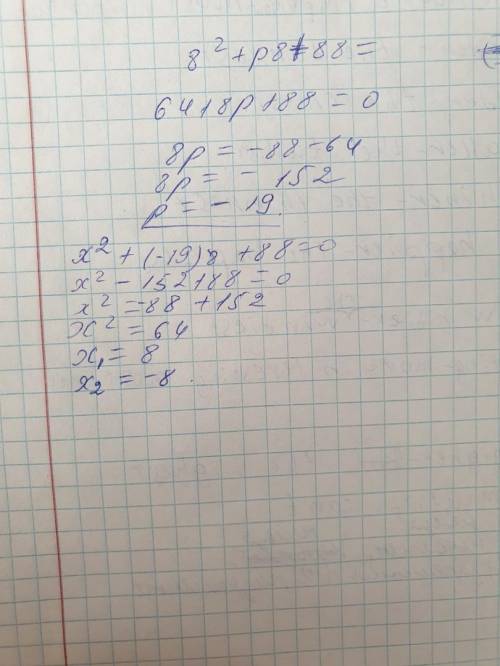 8² + p8 + 88 =
64 + 8p + 88 = 0
8p = -88 - 64
8p = - 152
p = - 19.
x² + (-19) 8 + 88 = 0
x² - 152 + 88 = 0
x² = -88 + 152
x² = 64
x₁ = 8
x₂ = -8.